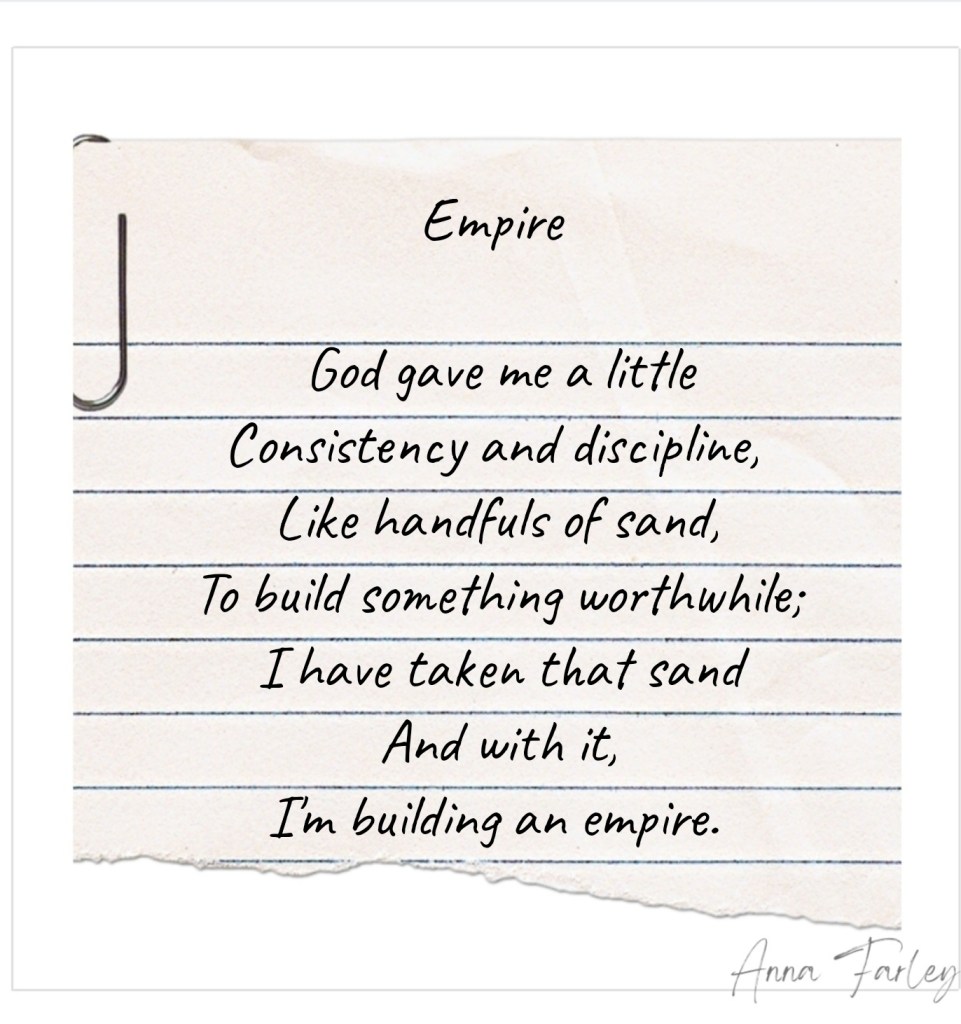 Empire
God gave me a little
Consistency and discipline,
Like handfuls of sand,
To build something worthwhile;
I have taken that sand
And with it,
I'm building an empire.
Anna Farley